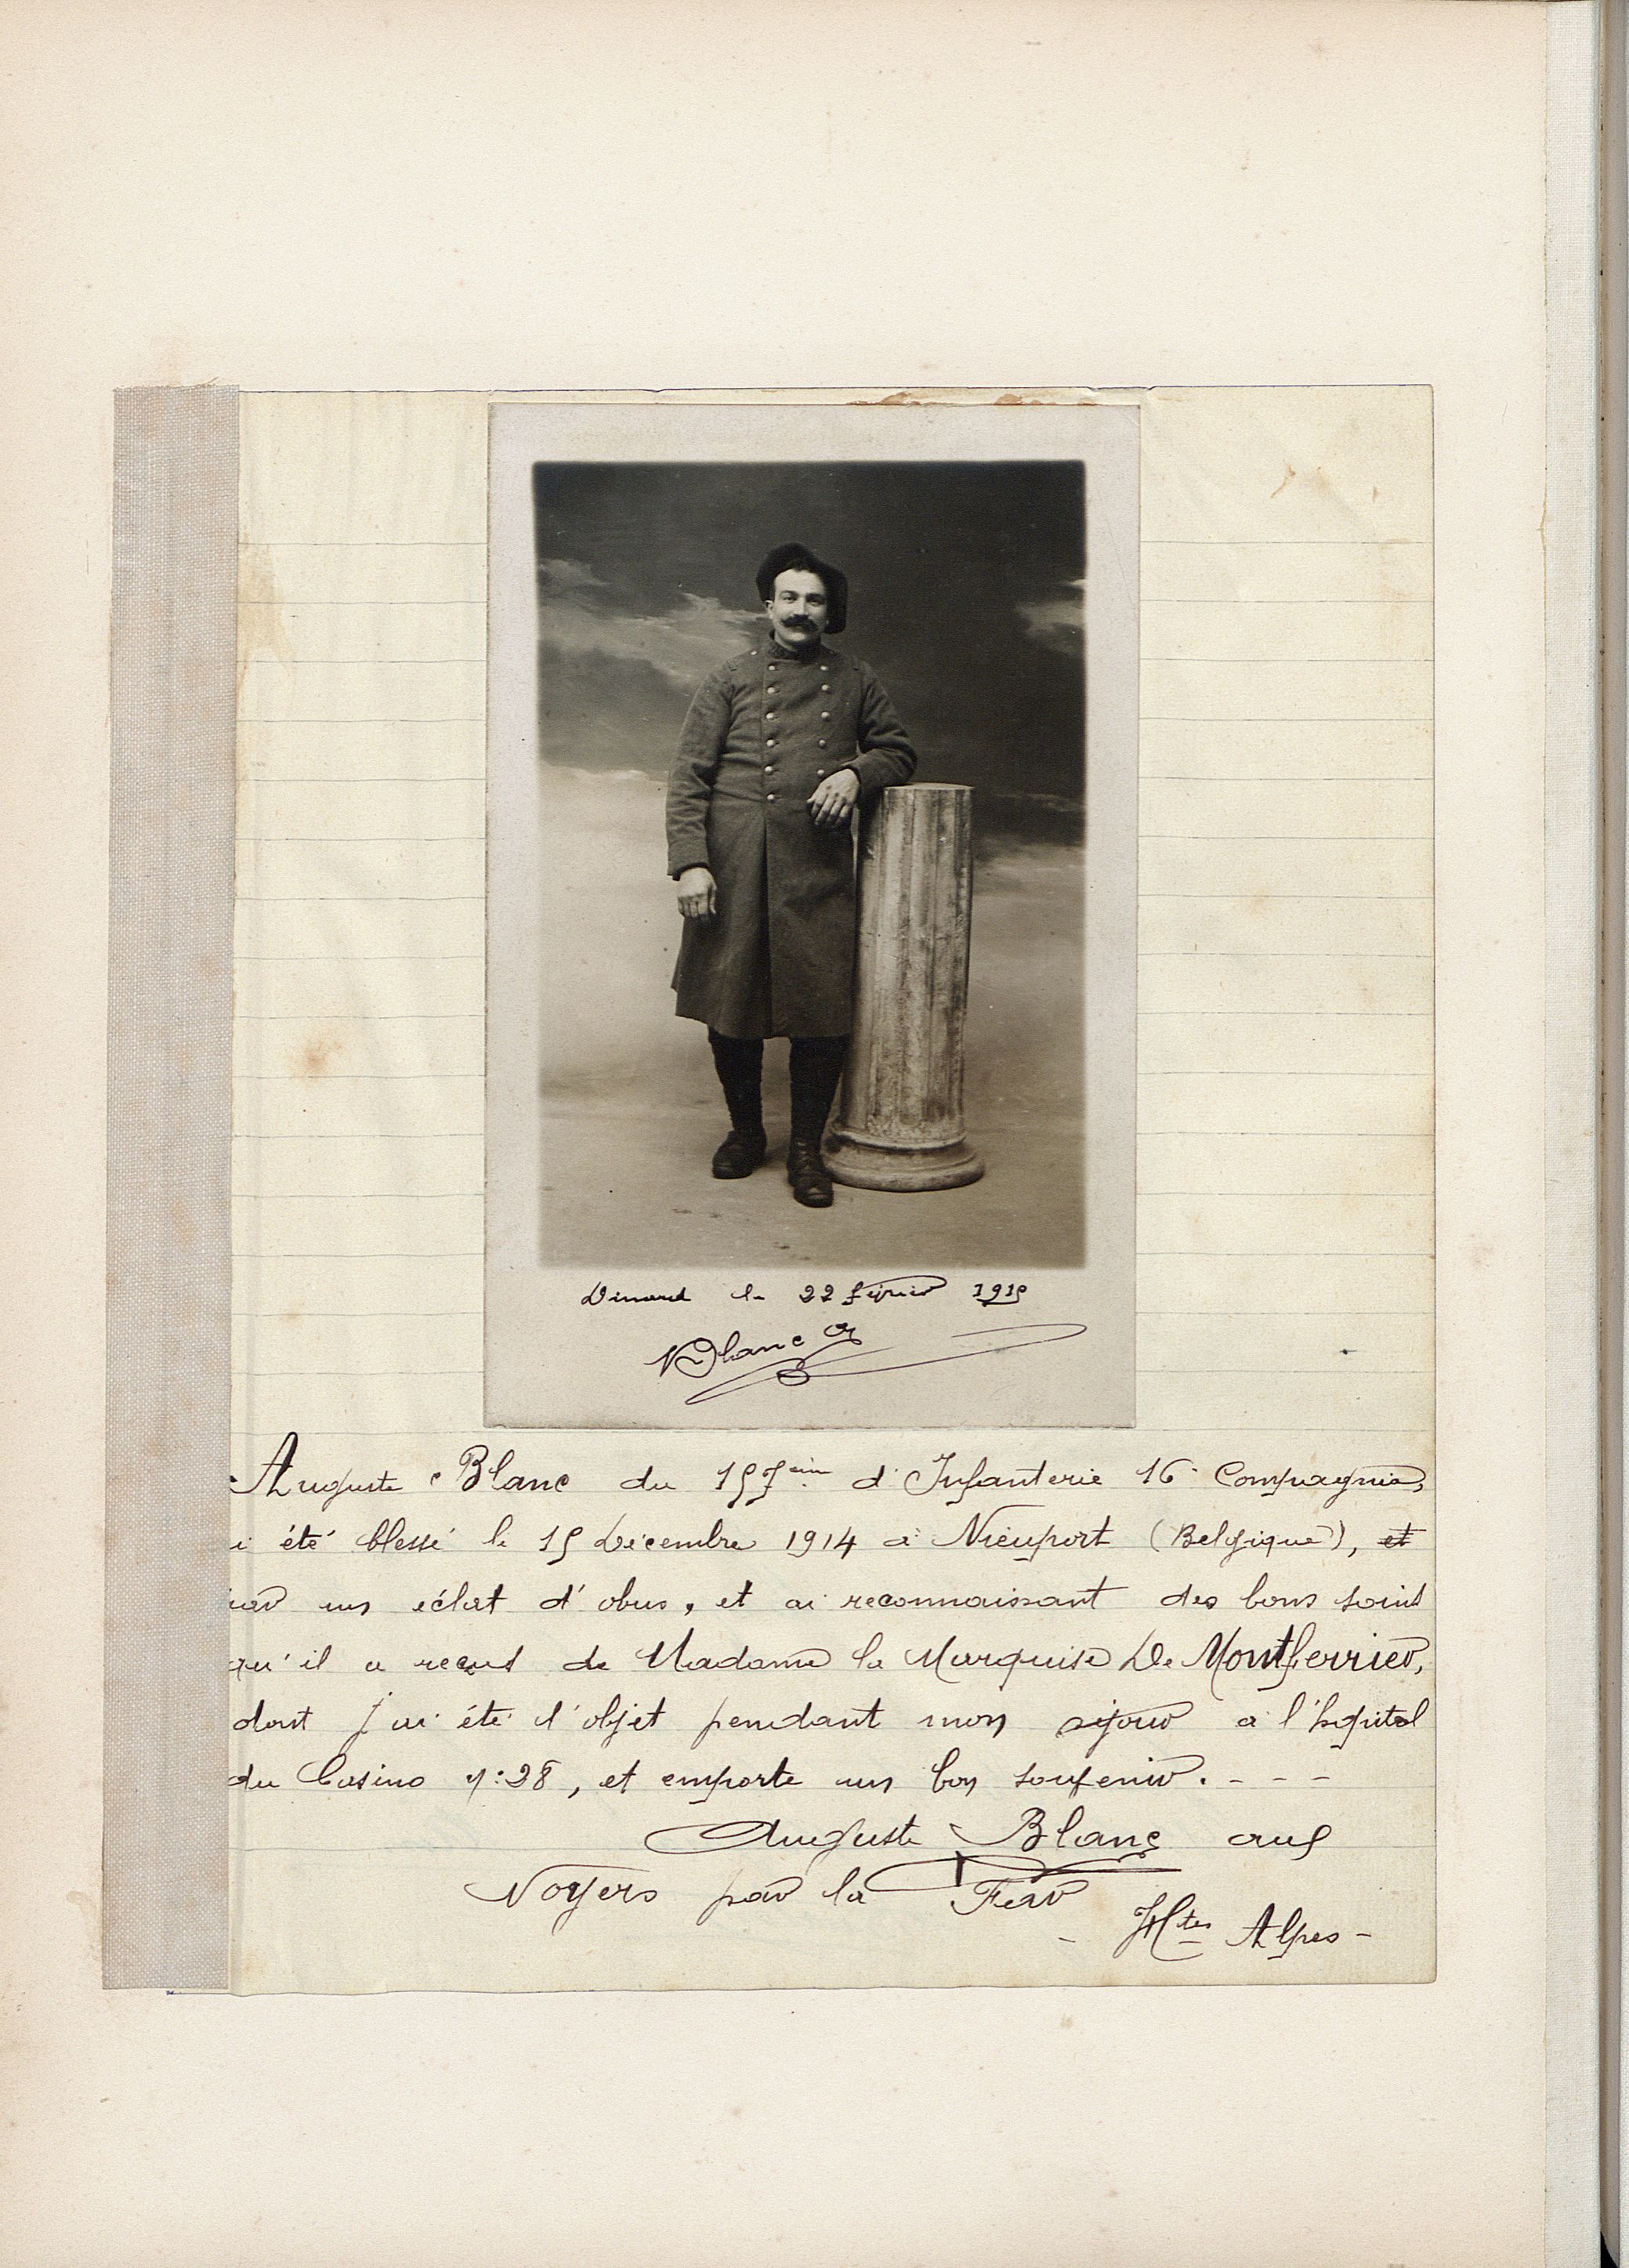 Dinard le 22 février 1915
Blanc
Auguste Blanc du 157ème d'Infanterie 16 Compagnie,
i été blessé le 15 Décembre 1914 à Nieuport (Belgique), et
par un éclat d'obus, et ai reconnaissant des bons soins
qu'il a reçus de Madame la Marquise De Montferrier,
dont j'ai été l'objet pendant mon séjour a l'hopital
du Casino n: 28, et emporte un bon soufenir. - - -
Auguste Blanc aux
Noyers par la Fear
- Htes Alpes -